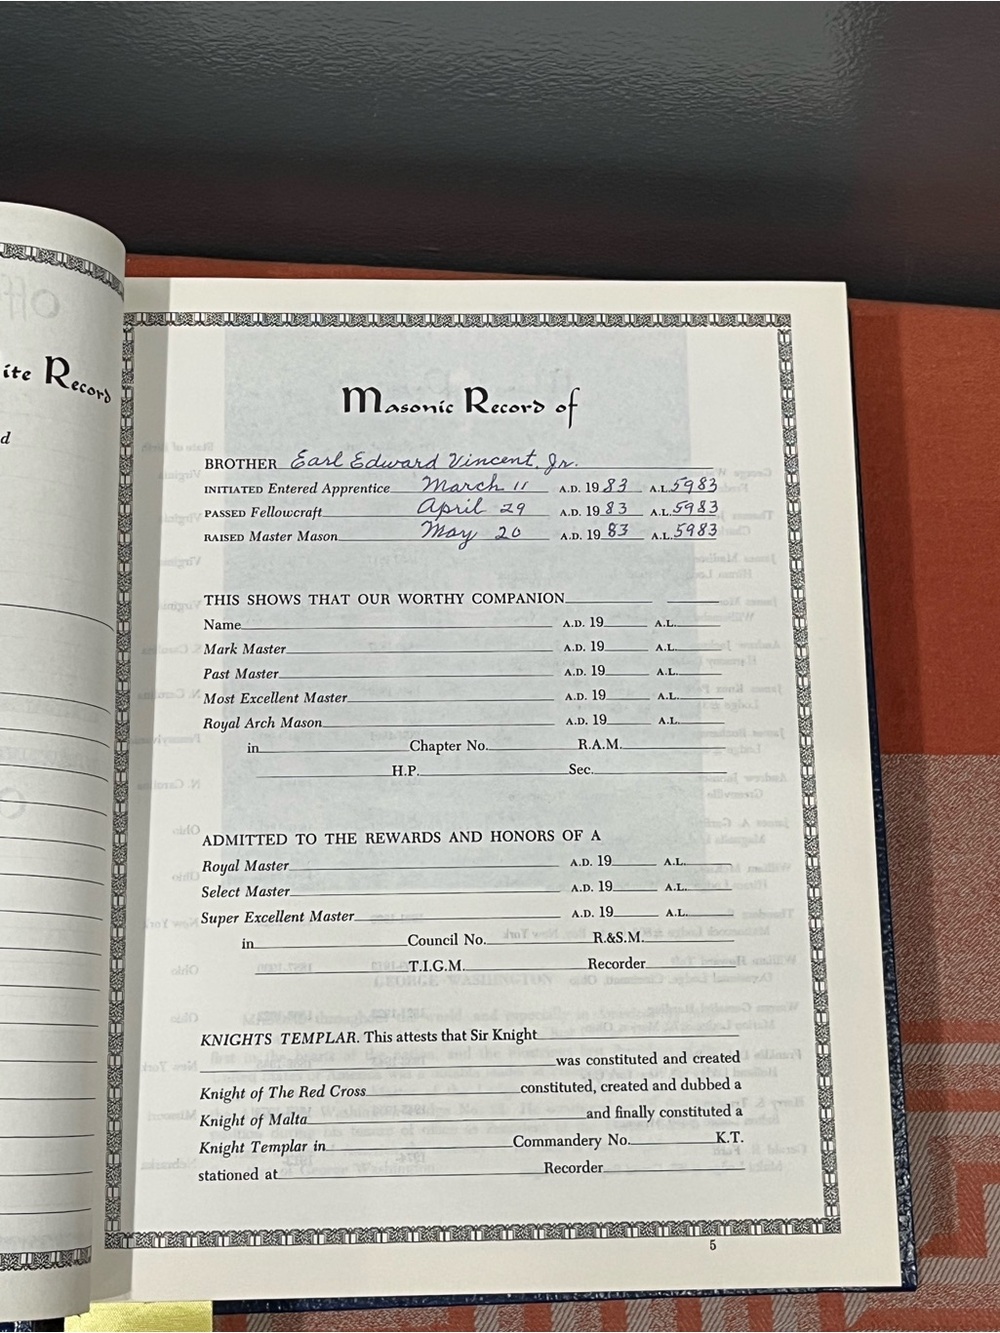 ite Record
d
Masonic Record of
BROTHER Earl Edward Vincent, Jr.
INITIATED Entered Apprentice March 11 A.D. 19 83 A.L. 5983
PASSED Fellowcraft April 29 A.D. 19 83 A.L. 5983
RAISED Master Mason May 20 A.D. 19 83 A.L. 5983
THIS SHOWS THAT OUR WORTHY COMPANION
Name A.D. 19 A.L.
Mark Master A.D. 19 A.L.
Past Master A.D. 19 A.L.
Most Excellent Master A.D. 19 A.L.
Royal Arch Mason A.D. 19 A.L.
in Chapter No. R.A.M.
H.P. Sec.
ADMITTED TO THE REWARDS AND HONORS OF A
Royal Master A.D. 19 A.L.
Select Master A.D. 19 A.L.
Super Excellent Master A.D. 19 A.L.
in Council No. R.&S.M.
T.I.G.M. Recorder
KNIGHTS TEMPLAR. This attests that Sir Knight
was constituted and created
Knight of The Red Cross constituted, created and dubbed a
Knight of Malta and finally constituted a
Knight Templar in Commandery No. K.T.
stationed at Recorder
5